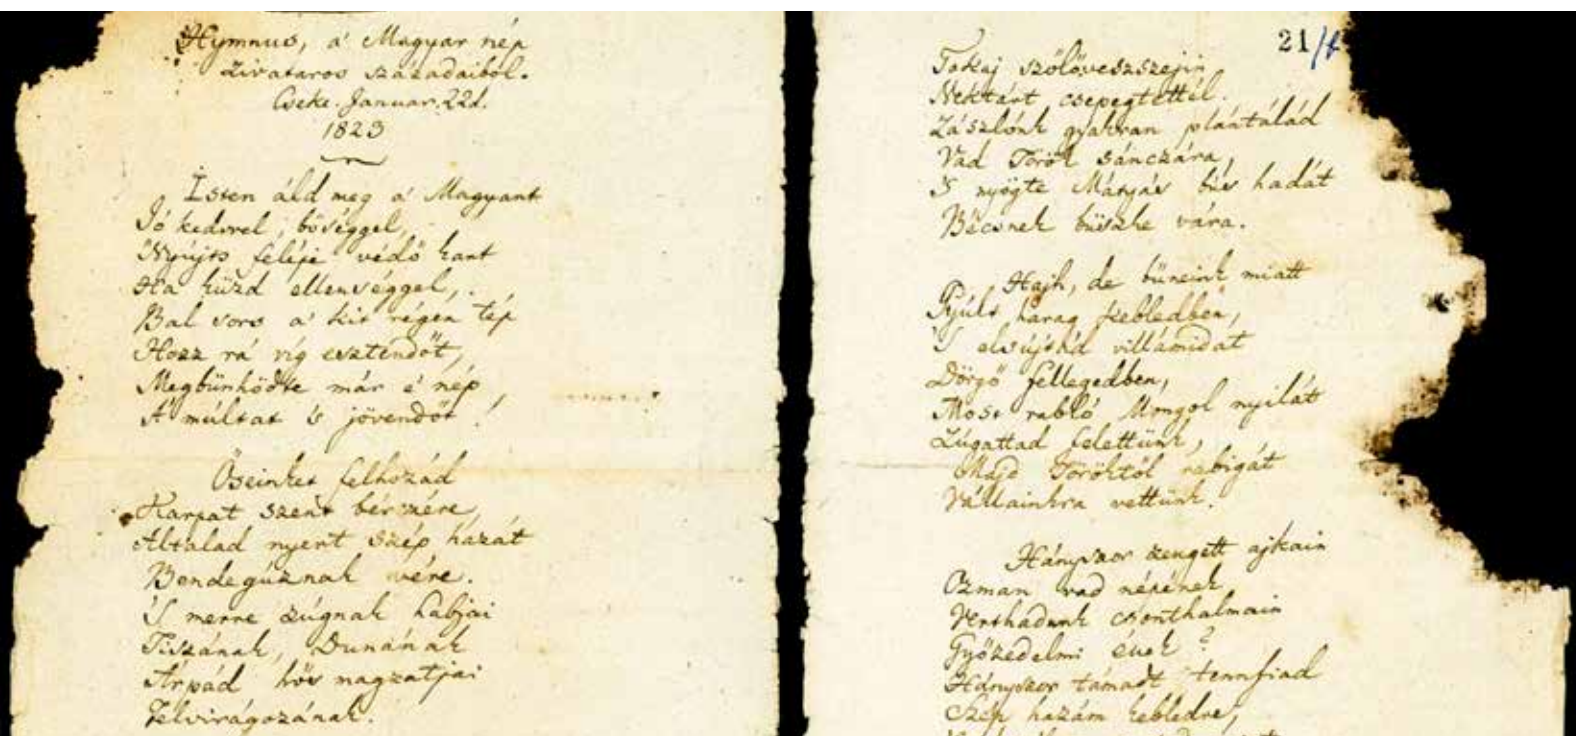 Hymnus, a' Magyar nép
zivataros századaiból.
Cseke. Januar. 22d.
1823
Isten áld meg a' Magyart
Jó kedvvel, bőséggel,
Nyújts feléje védő kart
Ha küzd ellenséggel,
Bal sors a' kit régen tép
Hozz rá víg esztendőt,
Megbünhödte már e' nép
A' múltat 's jövendőt!
Őseinket felhozád
Kárpát szent bérczére,
Általad nyert szép hazát
Bendegúznak vére.
'S merre zúgnak habjai
Tiszának, Dunának
Árpád hős magzatjai
Felvirágozának.
21/1
Tokaj szőlővesszein
Nektárt csepegtettél.
Zászlónk gyakran plántálád
Vad Török sánczára,
'S nyögte Mátyás bús hadát
Bécsnek büszke vára.
Hajh, de bűneink miatt
Gyúlt harag kebledben,
'S elsújtád villámidat
Dörgő fellegedben,
Most rabló Mongol nyilát
Zúgattad felettünk,
Majd Töröktől rabigát
Vállainkra vettünk.
Hányszor zengett ajkain
Ozman vad népének
Vert hadunk csonthalmain
Győzedelmi ének?
Hányszor támadt tennfiad
Szép hazám kebledre,